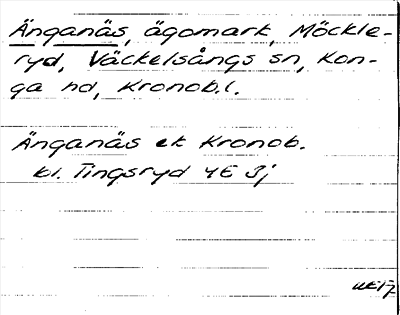 Änganäs, ägomark, Möckle-
ryd, Väckelsångs sn, Kon-
ga hd, Kronob.l.
Änganäs ek Kronob.
bl. Tingsryd 4E 3j